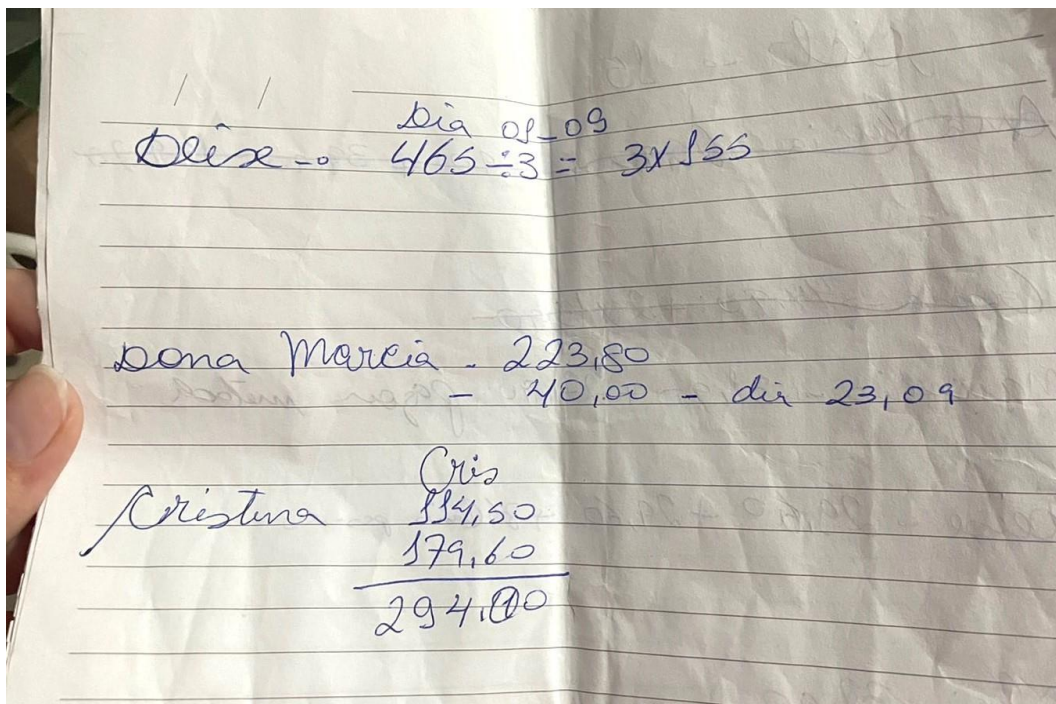 / /
Dia 01-09
465 ÷ 3 = 3x155
Dona Marcia - 223,80
- 40,00 - dia 23,09
Cris
Cristina 114,50
179,60
294,10